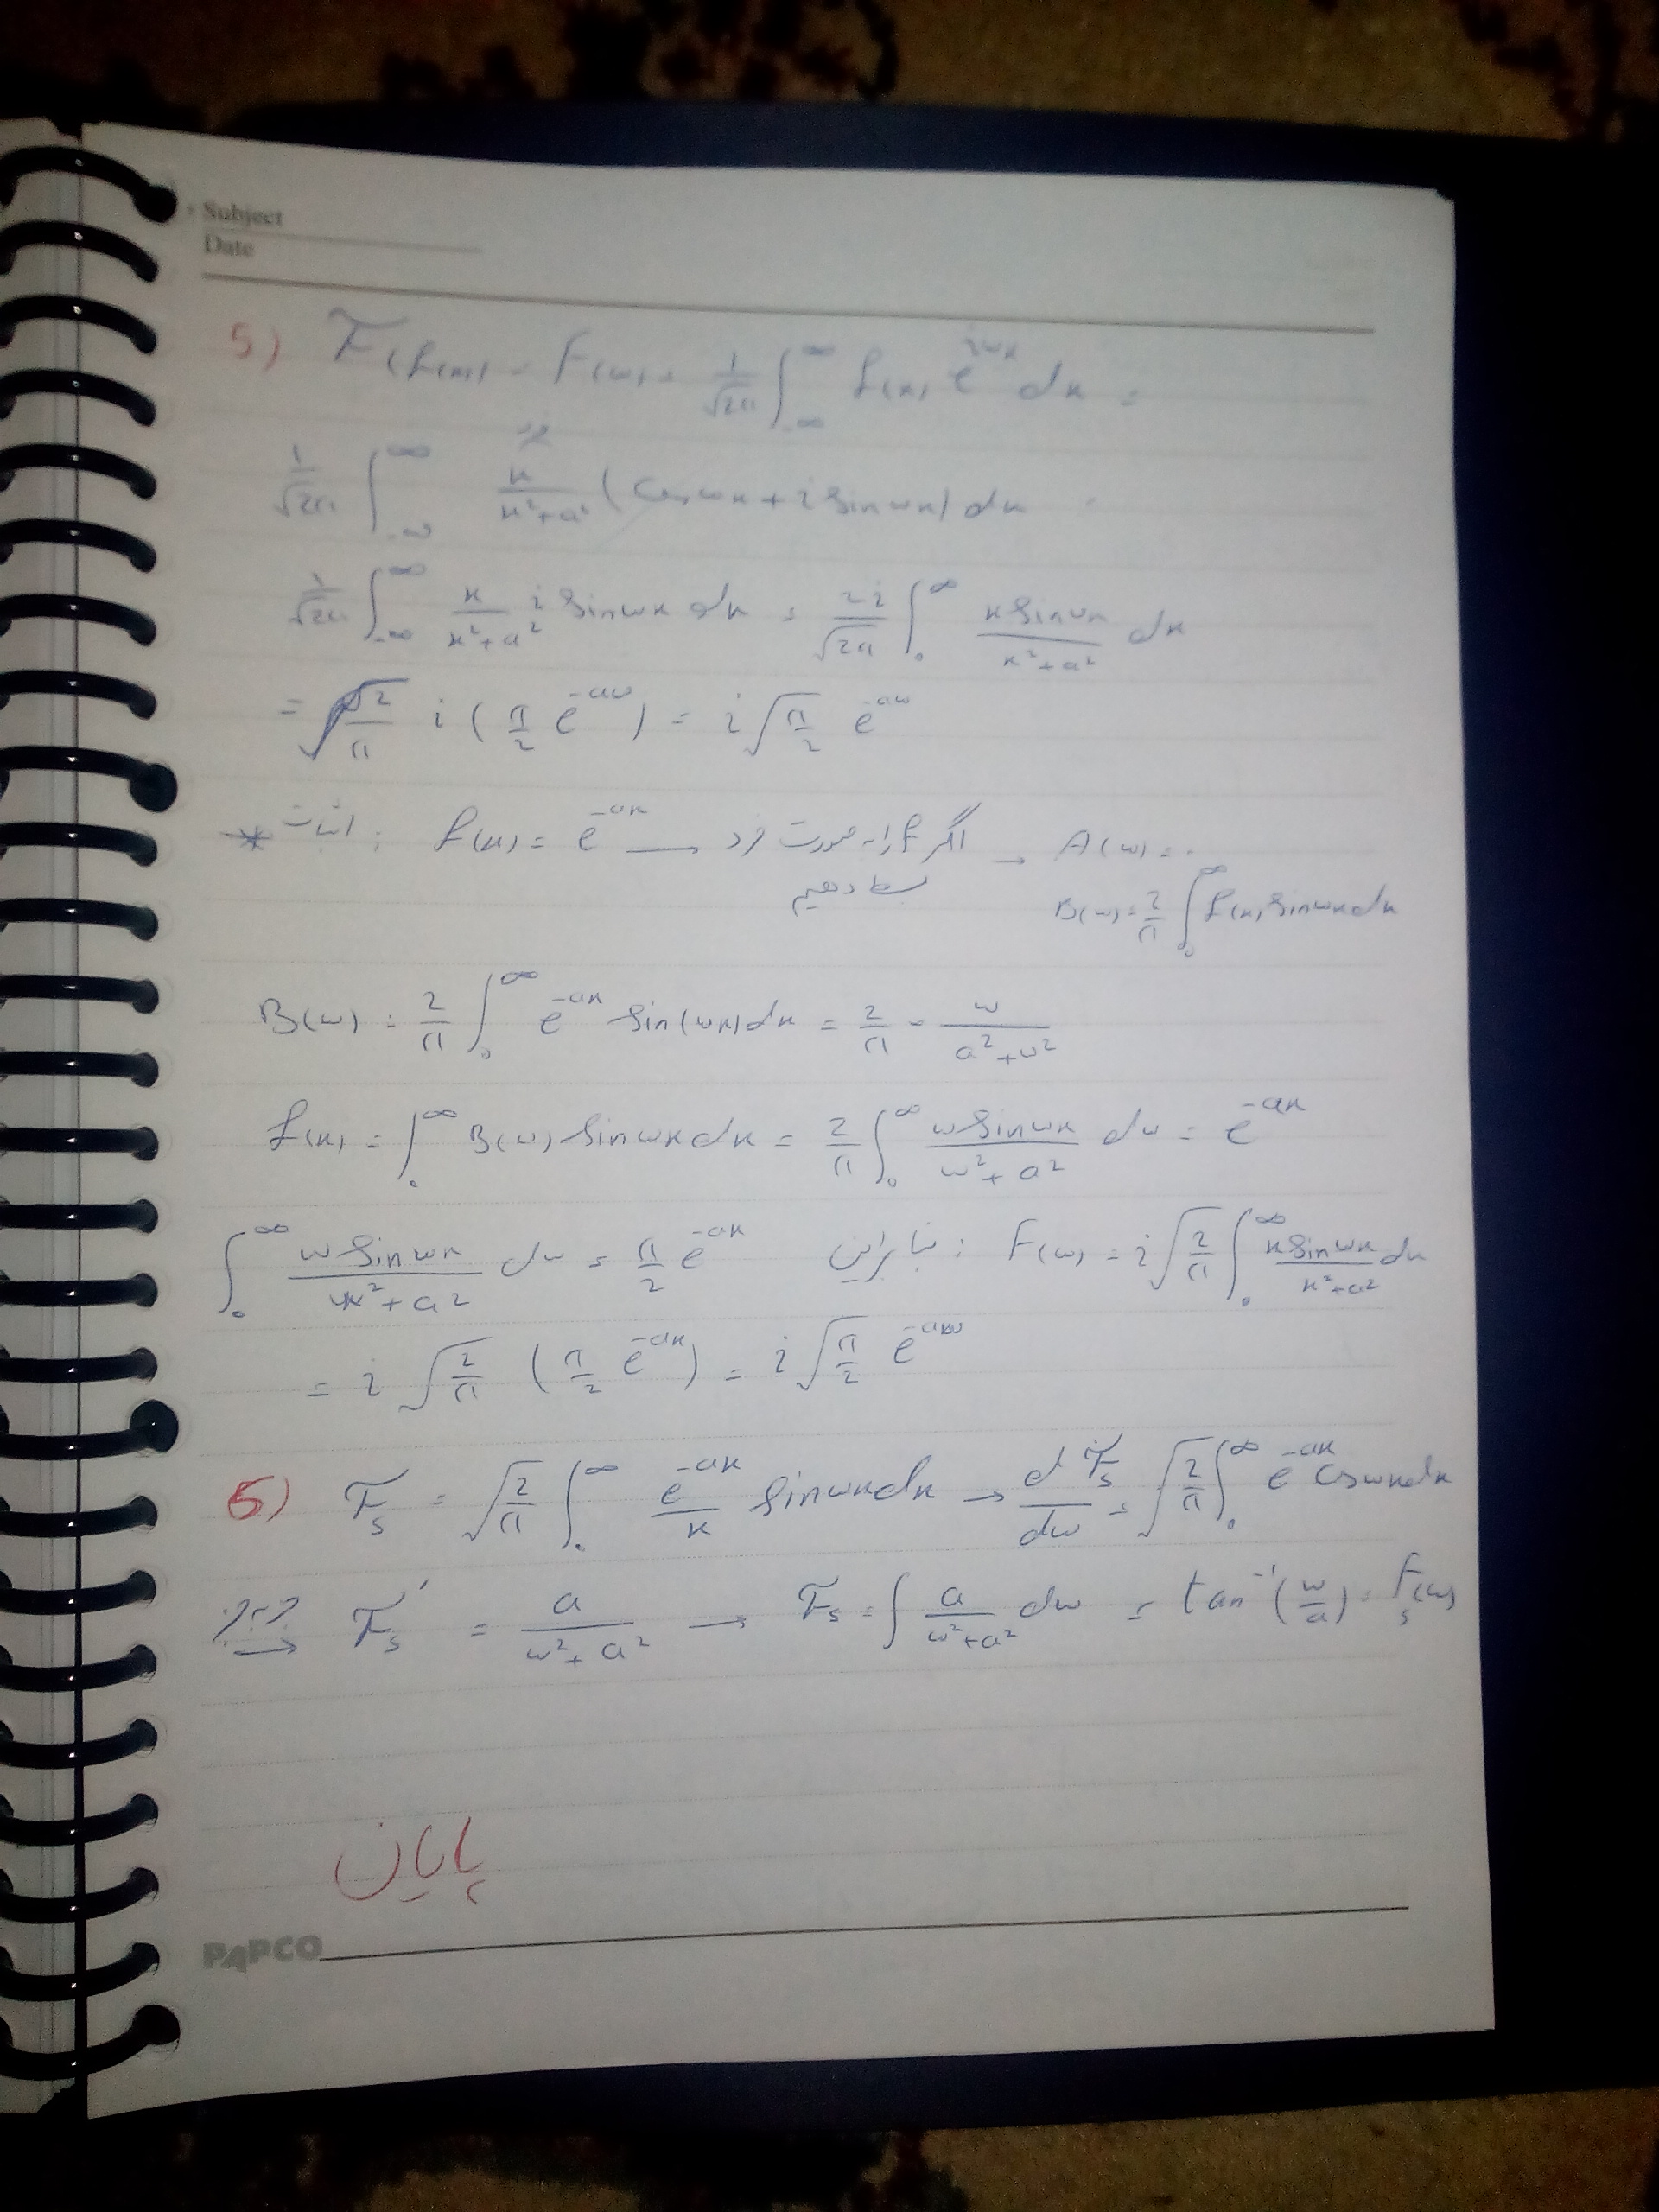 Subject
Date
5) F(f(x)) = F(ω) = 1/√2π ∫_{-∞}^{∞} f(x) e^{iωx} dx =
1/√2π ∫_{-∞}^{∞} x/(x²+a²) (cos ωx + i sin ωx) dx =
1/√2π ∫_{-∞}^{∞} x/(x²+a²) i sin ωx dx = 2i/√2π ∫_0^∞ x sin ωx/(x²+a²) dx
= √(2/π) i (π/2 e^{-aω}) = i √(π/2) e^{-aω}
* اثبات : f(x) = e^{-ax} → اگر f را به صورت فرد بسط دهیم → A(ω) = 0
B(ω) = 2/π ∫_0^∞ f(x) sin ωx dx
B(ω) = 2/π ∫_0^∞ e^{-ax} sin(ωx) dx = 2/π · ω/(a²+ω²)
f(x) = ∫_0^∞ B(ω) sin ωx dx = 2/π ∫_0^∞ ω sin ωx/(ω²+a²) dω = e^{-ax}
∫_0^∞ ω sin ωx/(x²+a²) dω = π/2 e^{-ax} بنابراین : F(ω) = i √(2/π) ∫_0^∞ x sin ωx/(x²+a²) dx
= i √(2/π) (π/2 e^{-ax}) = i √(π/2) e^{-aω}
6) F_s = √(2/π) ∫_0^∞ e^{-ax}/x sin ωx dx → dF_s/dω = √(2/π) ∫_0^∞ e^{-ax} cos ωx dx
جزء به جزء → F_s' = a/(ω²+a²) → F_s = ∫ a/(ω²+a²) dω = tan⁻¹(ω/a) = F_s(ω)
پایان
PAPCO